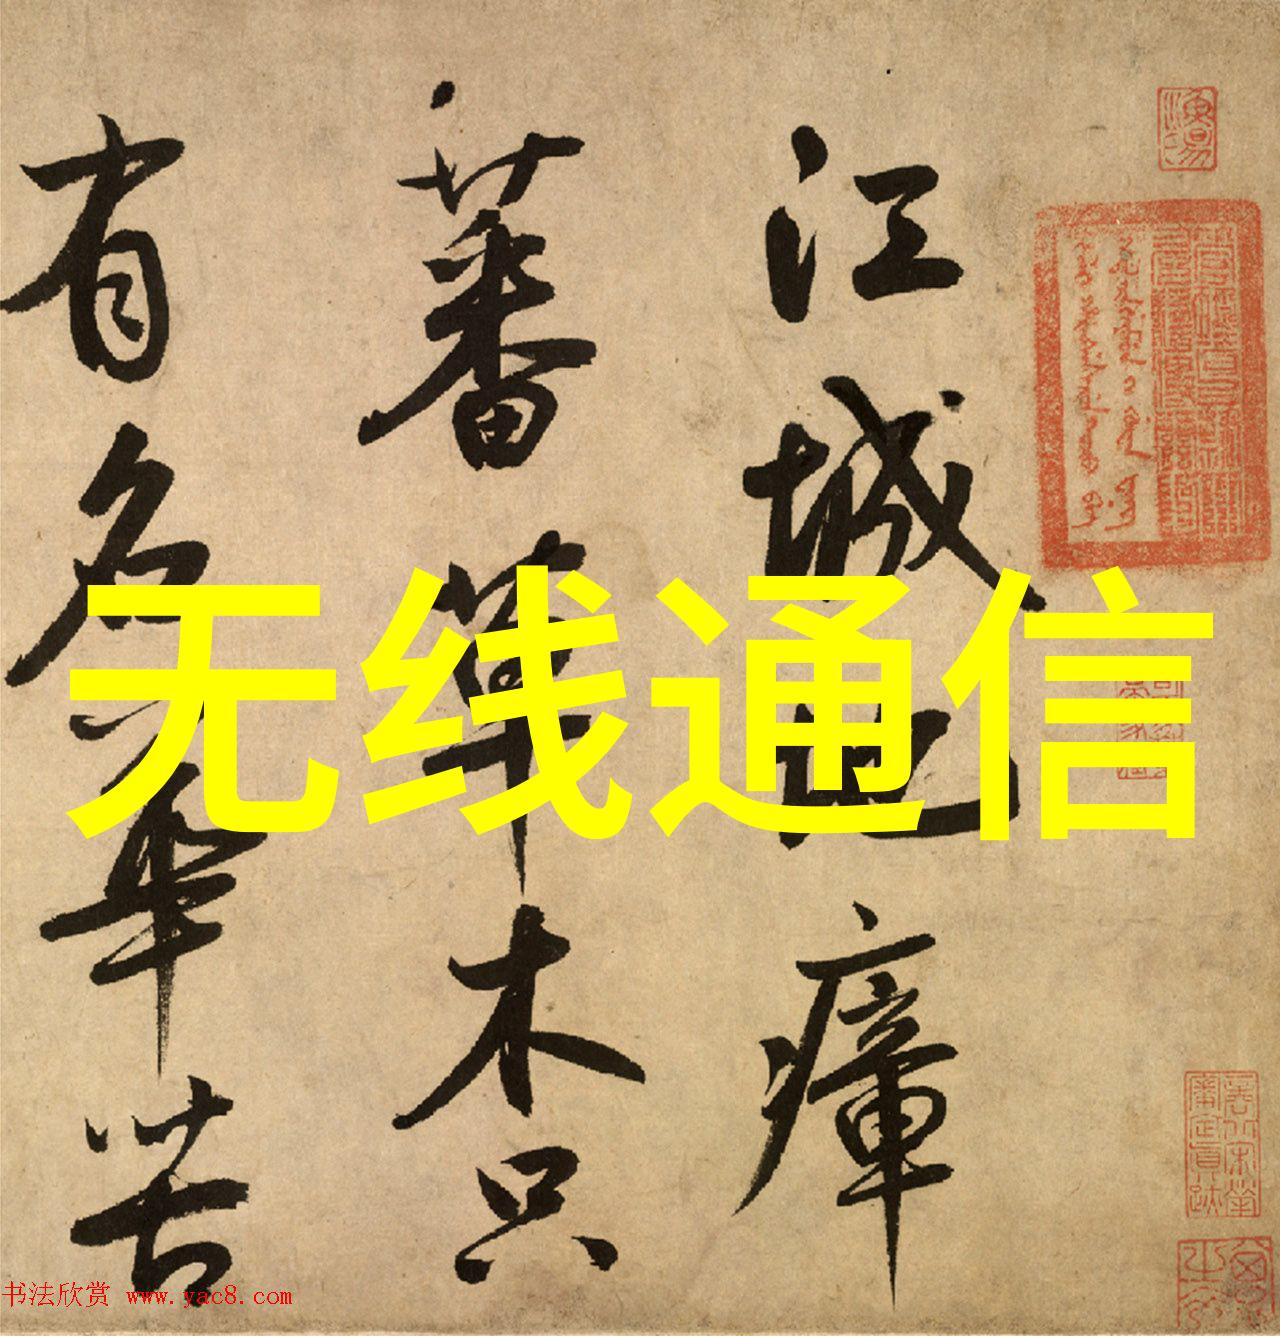 江城地瘴
蕃草木只
有名華苦
无线通信
书法欣赏 www.yac8.com